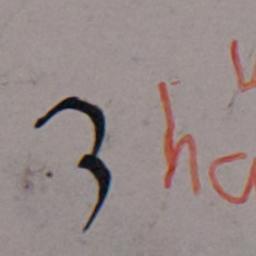 3 ha